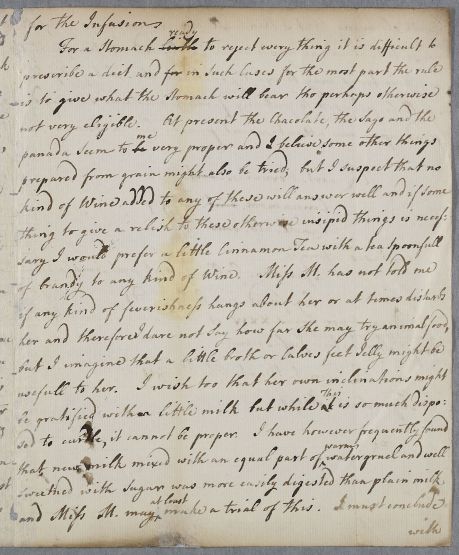 for the Infusions
For a Stomach ready to reject every thing it is difficult to
prescribe a diet and for in Such Cases for the most part the rule
is to give what the Stomach will bear tho perhaps otherwise
not very eligible. At present the Chocolate, the Sago and the
panada Seem to me be very proper and I beleive some other things
prepared from grain might also be tried, but I suspect that no
kind of Wine added to any of these will answer well and if some
thing to give a relish to these otherwise insipid things is neces:
sary I would prefer a little Cinnamon Tea with a tea spoonfull
of brandy to any kind of Wine. Miss M. has not told me
if any kind of feverishness hangs about her or at times disturbs
her and therefore I dare not Say how far She may try animal food,
but I imagine that a little broth or Calves feet Jelly might be
usefull to her. I wish too that her own inclinations might
be gratified with a little milk but while This is so much dispo:
sed to curdle, it cannot be proper. I have however frequently found
that new milk mixed with an equal part of warm watergruel and well
Sweetned with Sugar was more easily digested than plain milk
and Miss M. may at least make a trial of this. I must conclude
with